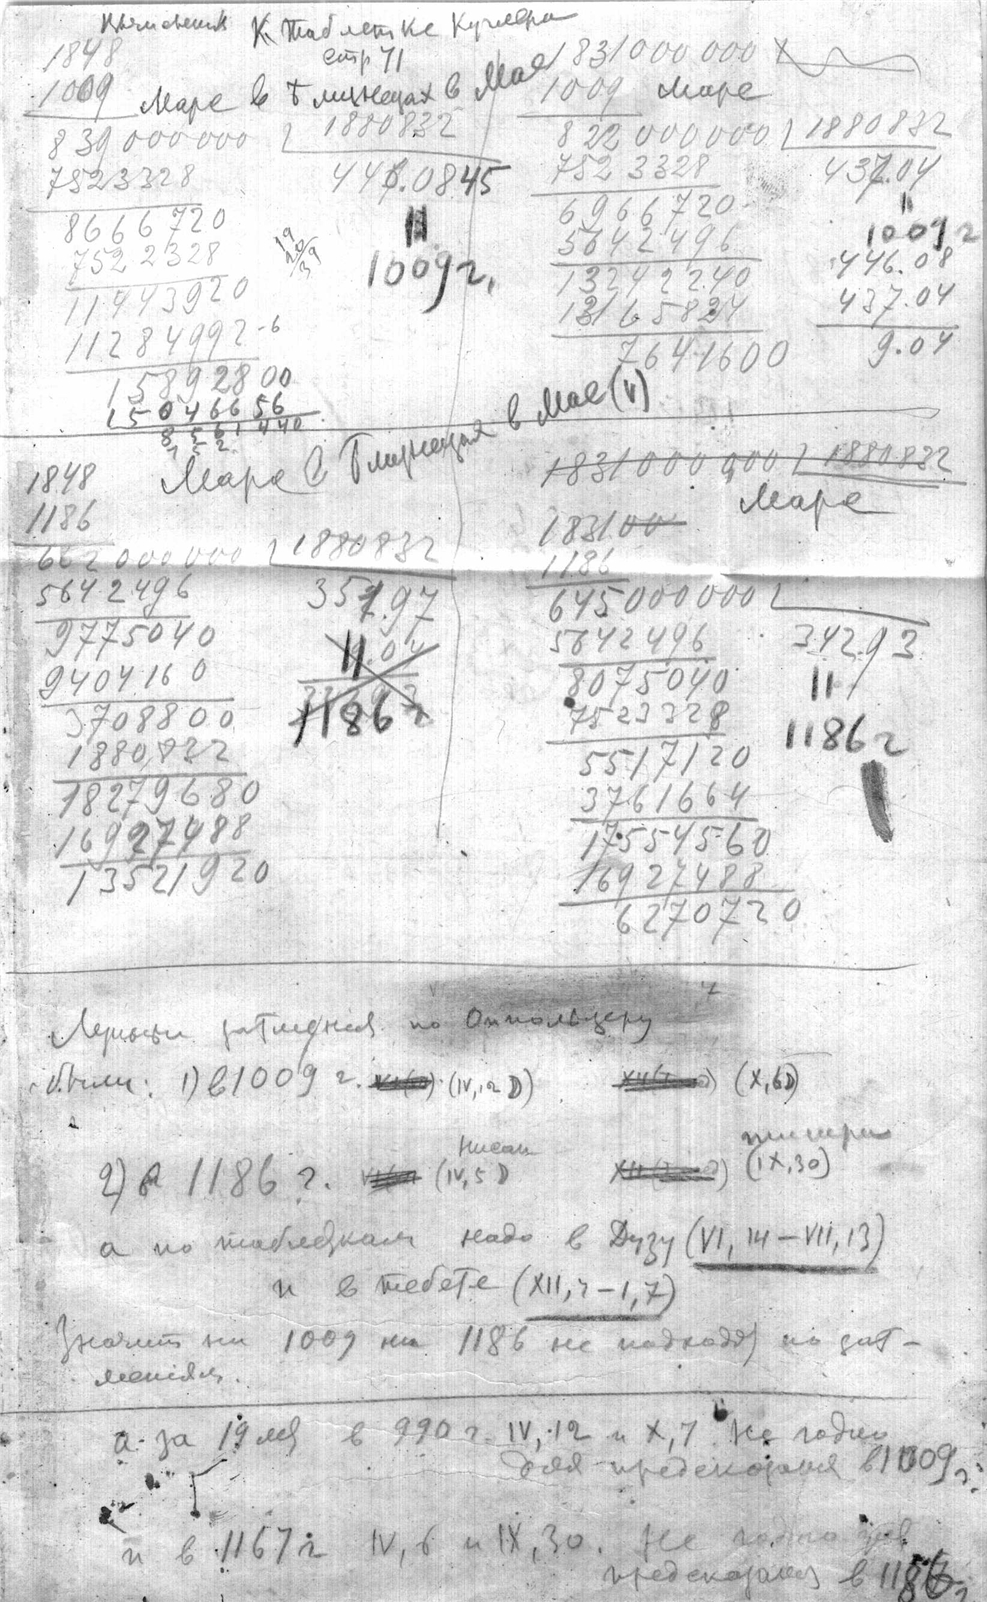 Вычисления К таблетке Куглера
стр 71
1848
1009
Марс в Близнецах в Мае
839000000 1880832
7523328 446.0845
8666720 11
7522328 1009 г.
11443920
11284992-6
15892800
15046656
19
20
39
1831000000
1009 Марс
822000000 1880832
7523328 437.04
6966720 11
5642496 1009 г
13242240 446.08
13165824 437.04
7641600 9.04
1848 Марс в Близнецах в Мае (V)
1186
662000000 1880832
5642496 351.97
9775040 11.04
9404160
3708800 1186 г
1880832
18279680
16927488
13521920
1831000000 1880832
Марс
183100
1186
645000000
5642496 342.93
8075040 11
7523328 1186 г
5517120
3761664
17554560
16927488
6270720
Лунныи затмения по Оппольцеру
были: 1) в 1009 г. (IV, 12 D) (X, 6D)
нисан тишри
2) в 1186 г. (IV, 5 D (IX, 30)
а по таблецкам надо в Дузу (VI, 14 – VII, 13)
и в тебете (XII, 7 – 1, 7)
Значит ни 1009 ни 1186 не подходят по зат-
мениям.
а за 19 лет в 990 г. IV, 12 и X, 7. Не годно
для предсказания в 1009 г.
и в 1167 г IV, 6 и IX, 30. Не годно для
предсказания в 1186 г